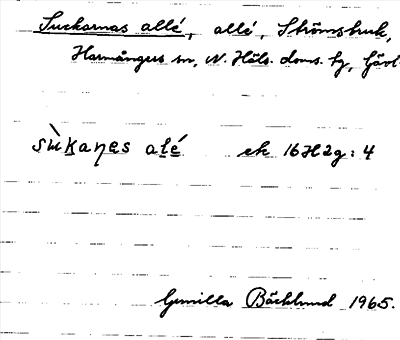 Suckarnas allé, allé, Strömsbruk,
Harmångers sn, N. Häls. doms. hg, Gävl.
sùkaṇes alé ek 16H2g:4
Gunilla Bäcklund 1965.